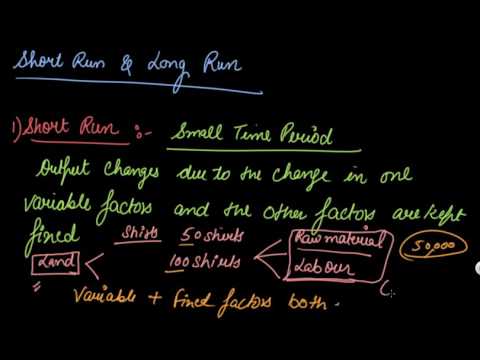 Short Run & Long Run
1) Short Run :- Small Time Period
Output changes due to the change in one
variable factors and the other factors are kept
fixed Shirts 50 shirts Raw material 50,000
Land 100 shirts Labour
Variable + fixed factors both.